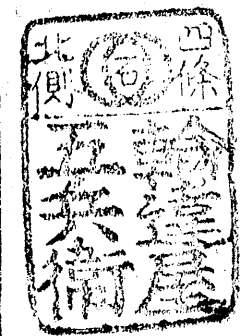 四條
北側
輪違屋
五兵衛